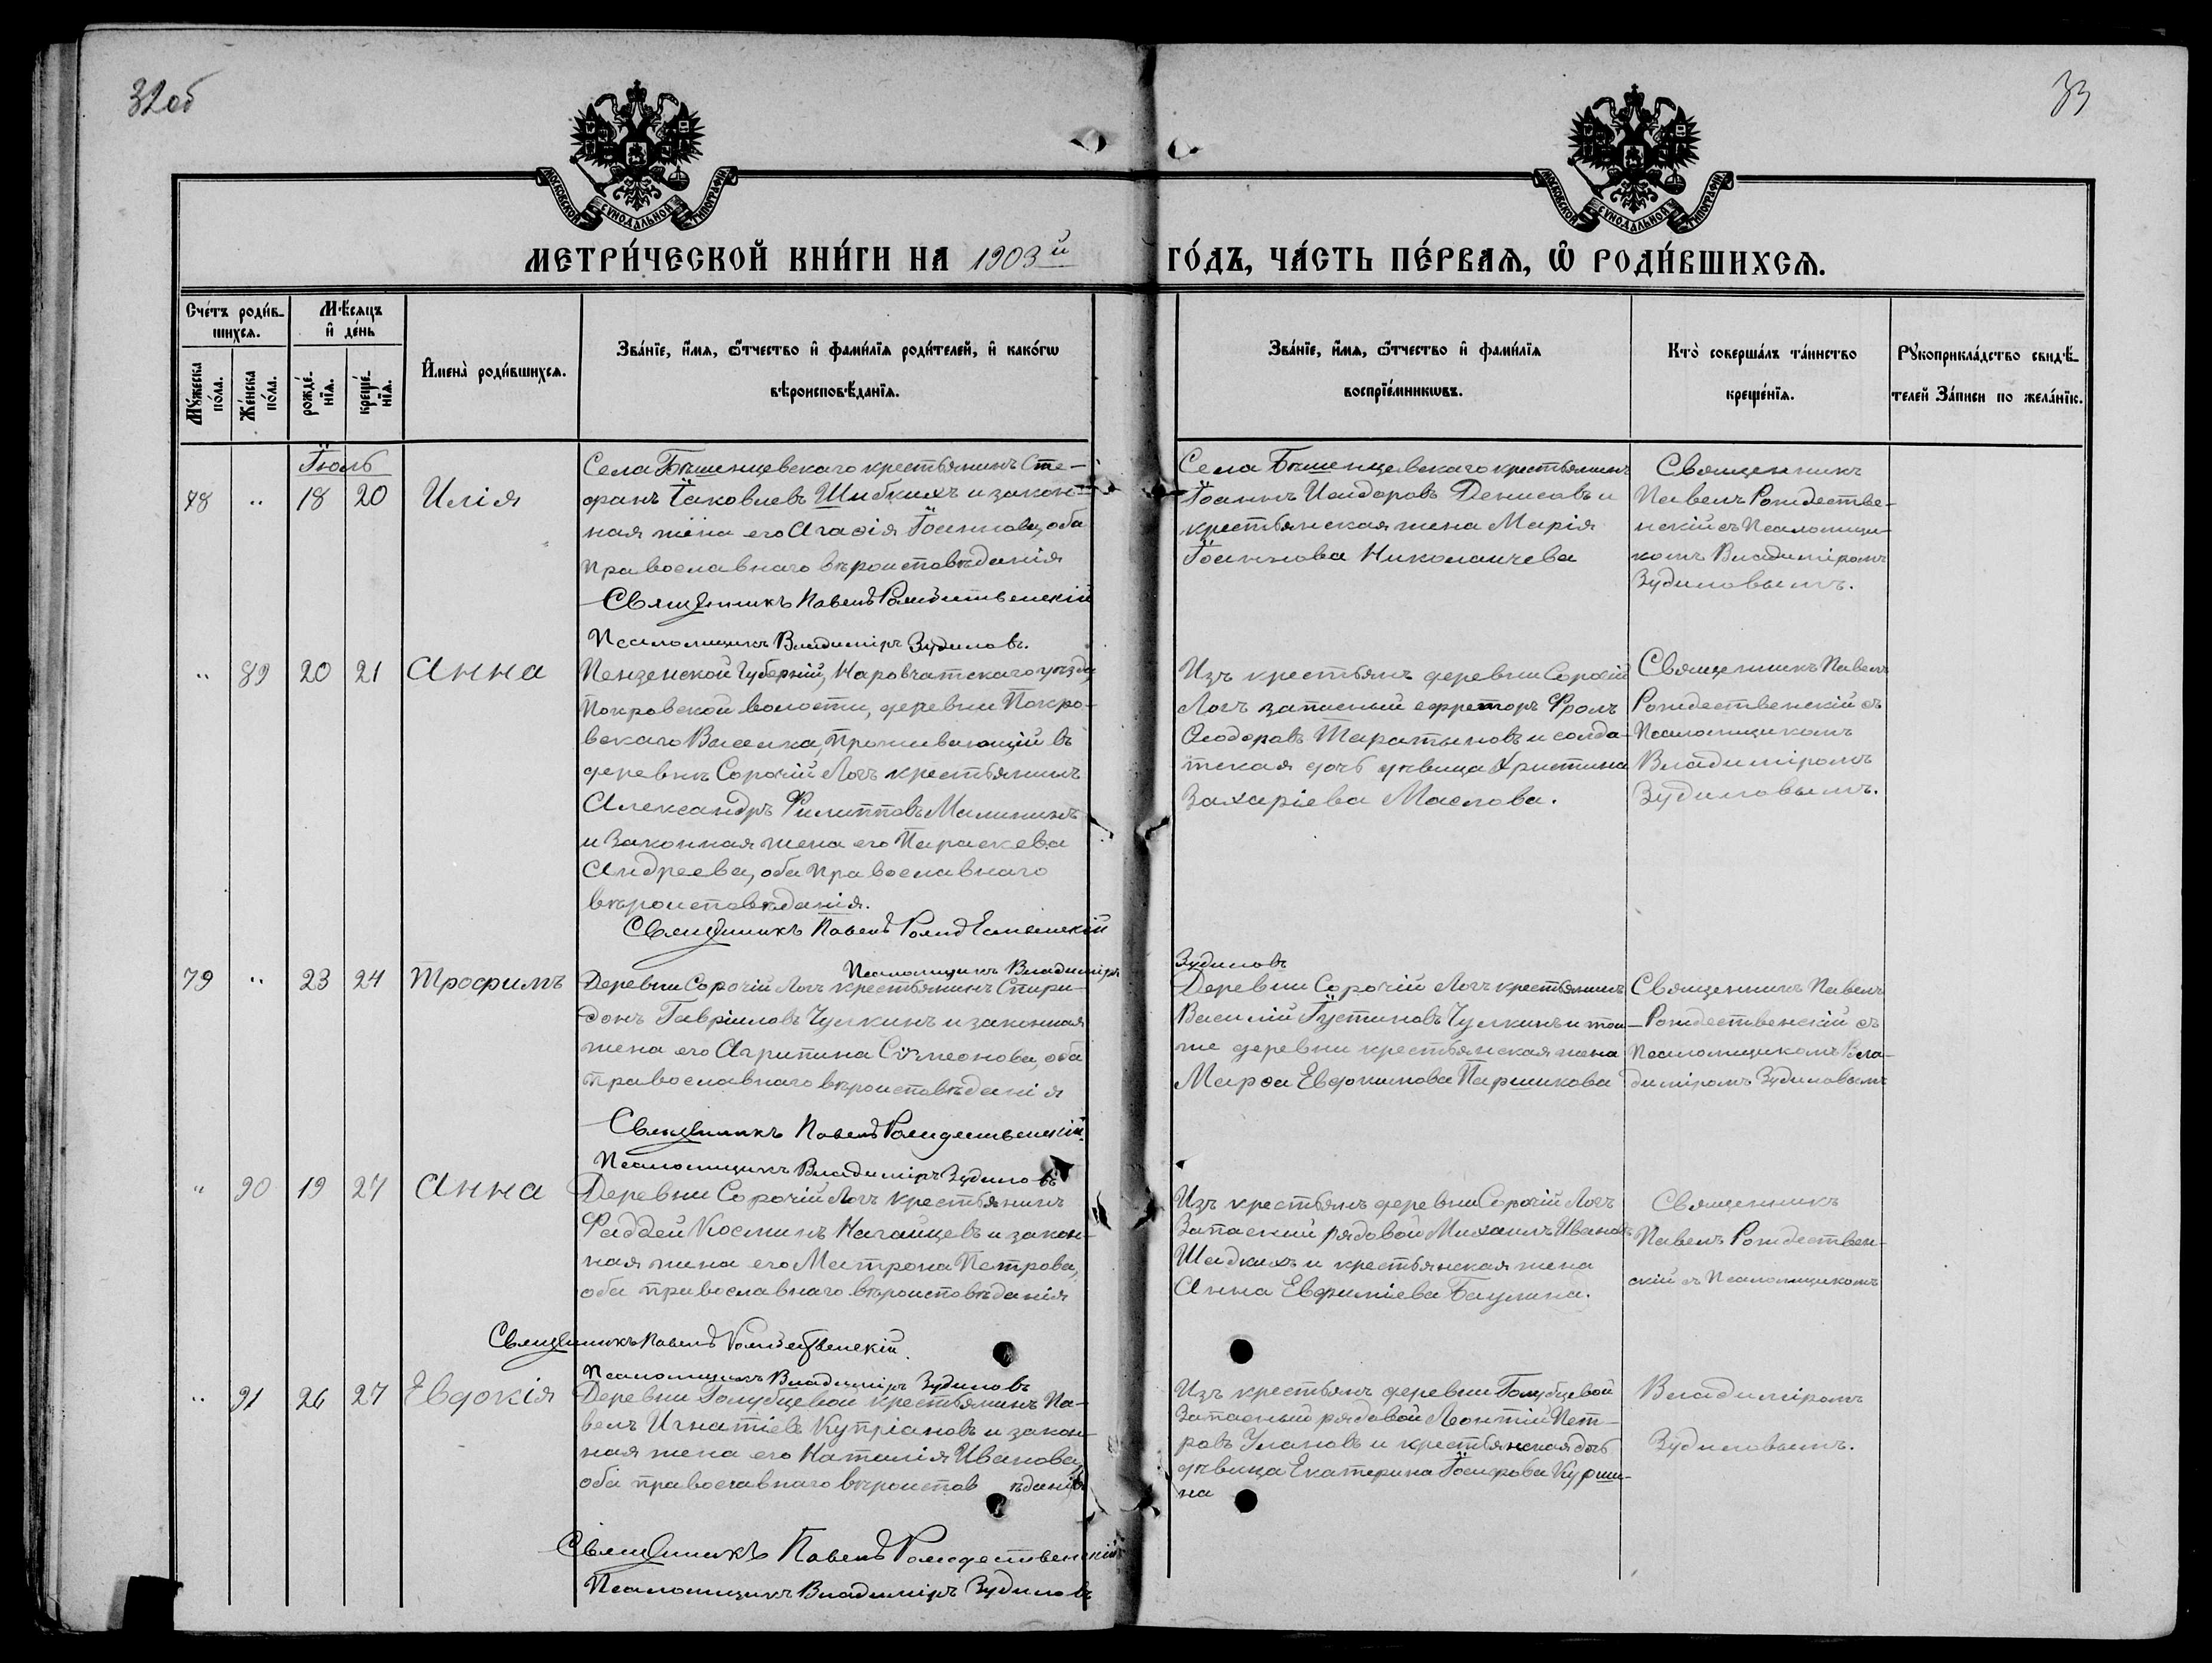 32об
33
МОСКОВСКОЙ СѴНОДАЛЬНОЙ ТИПОГРАФІИ
МОСКОВСКОЙ СѴНОДАЛЬНОЙ ТИПОГРАФІИ
МЕТРИ́ЧЕСКОЙ КНИ́ГИ НА 1903й ГО́ДЪ, ЧА́СТЬ ПЕ́РВАѦ, Ѡ РОДИ́ВШИХСѦ.
Сче́тъ роди́в-
шихсѧ.
Мѣ́сѧцъ
и҆ де́нь
Мꙋ́жеска
по́ла.
Же́нска
по́ла.
рожде́-
нїѧ.
креще́-
нїѧ.
И҆мена̀ роди́вшихсѧ.
Зва́нїе, и҆́мѧ, ѻ҆́тчество и҆ фами́лїѧ роди́телей, и҆ како́гѡ
вѣроисповѣ́данїѧ.
Зва́нїе, и҆́мѧ, ѻ҆́тчество и҆ фами́лїѧ
воспрїе́мникѡвъ.
Кто̀ соверша́лъ та́инство
креще́нїѧ.
Рꙋкоприкла́дство свидѣ́-
телей За́писи по жела́нїю.
Іюль
78 " 18 20 Илія
Села Бѣшенцевскаго крестьянинъ Сте-
фанъ Іаковлевъ Шибкихъ и закон-
ная жена его Агафія Іоаннова, оба
православнаго вѣроисповѣданія
Священникъ Павелъ Рождественскій
Псаломщикъ Владиміръ Зудиловъ.
Села Бѣшенцевскаго крестьянинъ
Іоаннъ Исидоровъ Денисовъ и
крестьянская жена Марія
Іоаннова Николаичева
Священникъ
Павелъ Рождестве-
нскій съ Псаломщи-
комъ Владиміромъ
Зудиловымъ.
" 89 20 21 Анна
Пензенской Губерній, Наровчатскаго уѣзда,
Покровской волости, деревни Покро-
вскаго Выселка, проживающій въ
деревнѣ Сорочій Логъ крестьянинъ
Александръ Филипповъ Малининъ
и законная жена его Параскева
Андреева, оба православнаго
вѣроисповѣданія.
Священникъ Павелъ Рождественскій
Псаломщикъ Владиміръ
Зудиловъ
Изъ крестьянъ деревни Сорочій
Логъ запасный ефрейторъ Фролъ
Ѳеодоровъ Таратыновъ и солда-
тская дочь дѣвица Христина
Захаріева Маслова.
Священникъ Павелъ
Рождественскій съ
Псаломщикомъ
Владиміромъ
Зудиловымъ.
79 " 23 24 Трофимъ
Деревни Сорочій Логъ крестьянинъ Спири-
донъ Гавріиловъ Чулкинъ и законная
жена его Агрипина Сѵмеонова, оба
православнаго вѣроисповѣданія
Священникъ Павелъ Рождественскій.
Псаломщикъ Владиміръ Зудиловъ
Деревни Сорочій Логъ крестьянинъ
Василій Іустиновъ Чулкинъ и той
же деревни крестьянская жена
Марѳа Евдокимова Паршикова
Священникъ Павелъ
Рождественскій съ
Псаломщикомъ Вла-
диміромъ Зудиловымъ
" 90 19 27 Анна
Деревни Сорочій Логъ крестьянинъ
Фаддей Косминъ Нагайцевъ и закон-
ная жена его Матрона Петрова,
оба православнаго вѣроисповѣданія
Священникъ Павелъ Рождественскій.
Псаломщикъ Владиміръ Зудиловъ
Изъ крестьянъ деревни Сорочій Логъ
Запасный рядовой Михаилъ Ивановъ
Шадкихъ и крестьянская жена
Анна Евфиміева Баулина.
Священникъ
Павелъ Рождествен-
скій съ Псаломщикомъ
" 91 26 27 Евдокія
Деревни Голубцевой крестьянинъ Па-
велъ Игнатіевъ Купріановъ и закон-
ная жена его Наталія Иванова,
оба православнаго вѣроисповѣданія
Священникъ Павелъ Рождественскій
Псаломщикъ Владиміръ Зудиловъ
Изъ крестьянъ деревни Голубцевой
Запасный рядовой Леонтій Пет-
ровъ Улановъ и крестьянская дочь
дѣвица Екатерина Іосифова Курши-
на
Владиміромъ
Зудиловымъ.